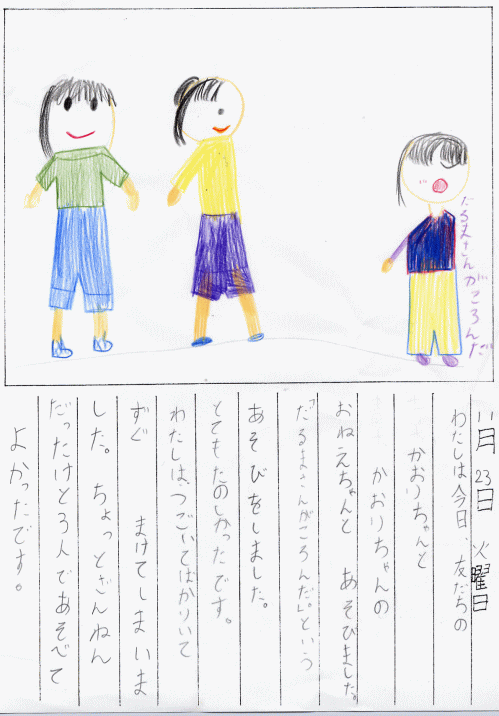 だるまさんがころんだ
11月23日 火曜日
わたしは今日、友だちの
かおりちゃんと
かおりちゃんの
おねえちゃんと あそびました。
「だるまさんがころんだ」。という
あそびをしました。
とてもたのしかったです。
わたしは、つごいてばかりいて
すぐ まけてしまいま
した。ちょっとざんねん
だったけど3人であそべて
よかったです。